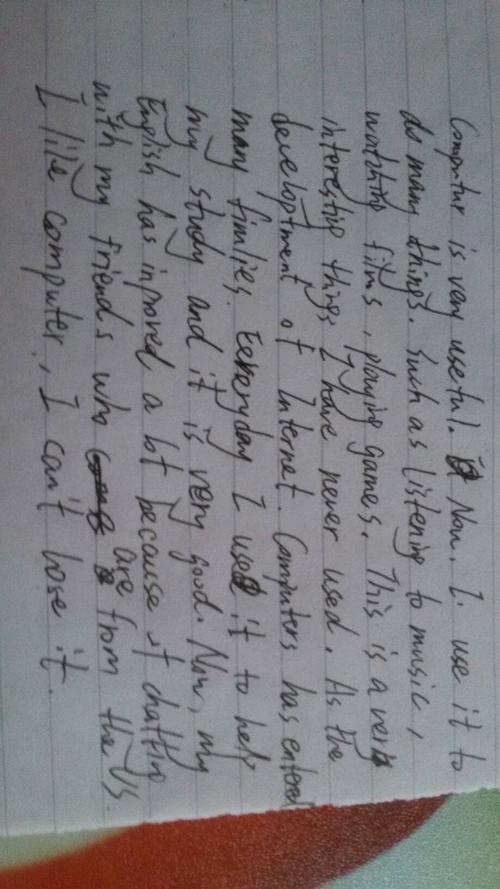 Computer is very useful. Now, I use it to
do many things. Such as listening to music,
watching films, playing games. This is a very
interesting things I have never used. As the
developtment of Internet. Computers has entered
many fimlies. Everyday I use it to help
my study and it is very good. Now, my
English has inproved a lot because of chatting
with my friends who are from the US.
I like computer, I can't lose it.